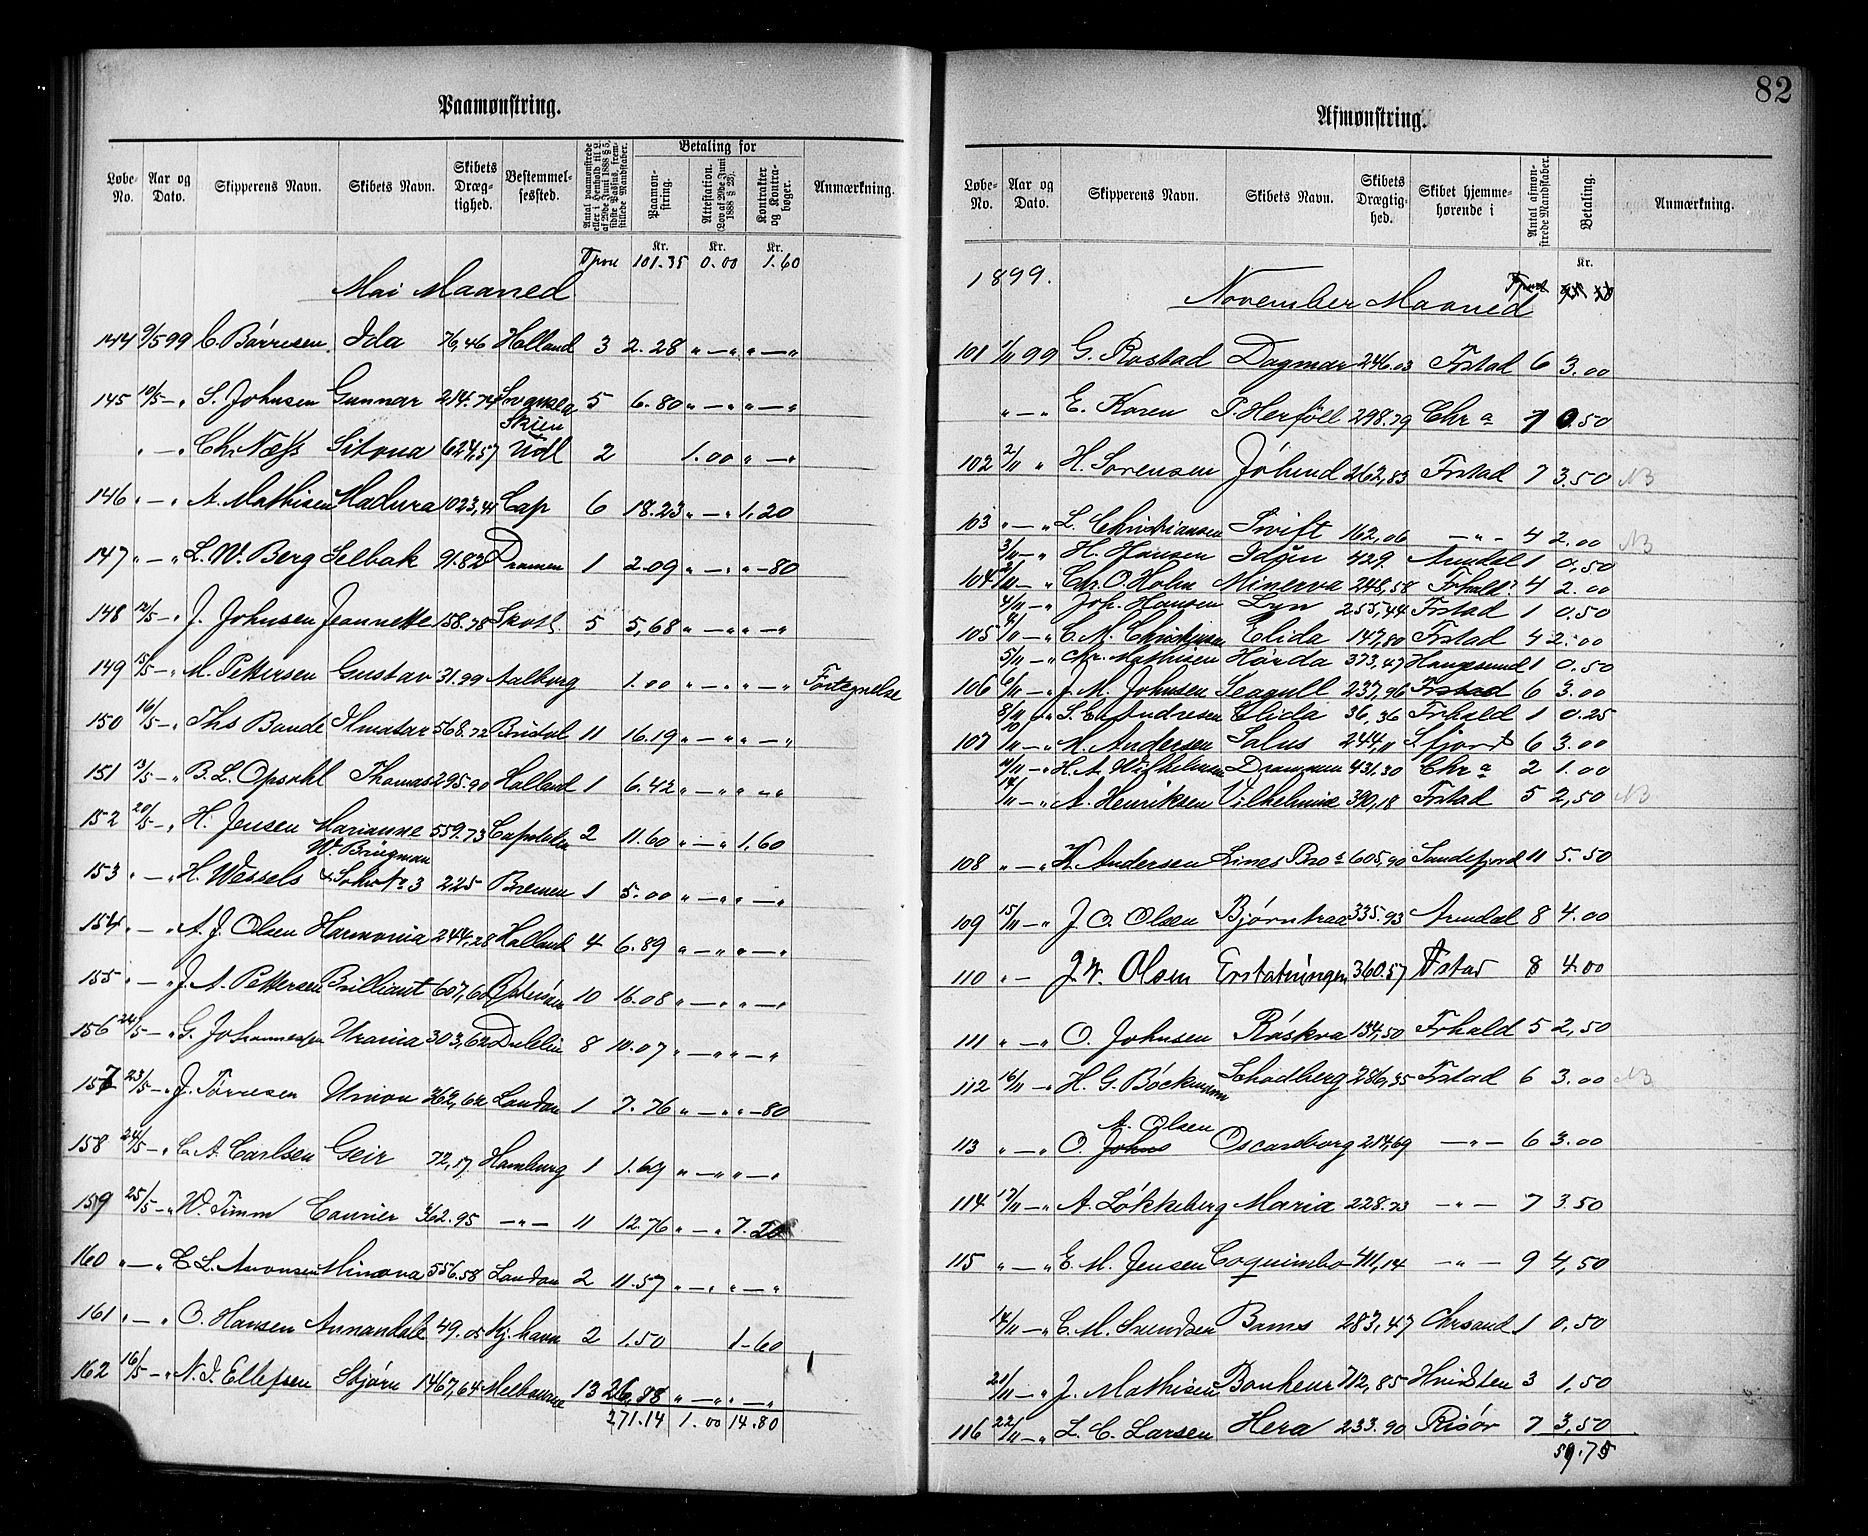 Paamønstring.
Løbe-No. Aar og Dato. Skipperens Navn. Skibets Navn. Skibets Dræg-tighed. Bestemmel-sessted. Betaling for Paamøn-string. Attestation. (Lov af 29de Juni 1888 § 23). Kontrakter og Kontra-bøger. Anmærkning.
Kr. Kr. Kr.
Tpore 101.35 0.00 1.60
Mai Maaned
144 9/5 99 C. Børresen Ida 76,46 Holland 3 2.28 " — " " — "
145 10/5 - " S. Johnsen Gunnar 214.74 5 6.80 " — " " — "
Skien
" — " Chr Næss Sitona 624,57 Udl 2 1.00 " — "
146 " — " A. Mathisen Madura 1023,41 Cap 6 18.23 " — " 1,20
147 " — " L. W. Berg Selbak 91.82 Dramen 1 2.09 " — " " - 80
148 12/5 - " J. Johnsen Jeannette 158.78 Skotl. 5 5,68 " — " " — "
149 15/5 - " M. Pettersen Gustav 31.99 Aalborg 1.00 " — " " — " Fortegnelse
150 16/5 - " Ths Bande Ilmatar 568.72 Bristol 11 16.19 " — " " — "
151 " B. L. Opsahl Thomas 295.90 Holland 1 6.42 " — " " — "
152 20/5 - " H. Jensen Marianne 559.73 2 11.60 " — " 1.60
W. Brügman
153 " — " H. Wessels & Sohn No 3 225 Bremen 1 5.00 " — " " — "
154 " — " A. J. Olsen Harmonia 244,28 Holland 4 6.89 " — " " — "
155 " — " J. A. Pettersen Brilliant 607,60 10 16.08 " — " " — "
156 22/5 - " G. Johannessen Urania 303,62 Dublin 8 10.07 " — " " — "
157 23/5 - " J. Tørresen Union 362,62 London 1 7.76 " — " " - 80
158 24/5 - " C. A. Carlsen Geir 72,17 Hamburg 1 1.69 " — " " — "
159 25/5 - " W. Timm Courier 362.95 — " — 11 12.76 " — " 7.20
160 " — " C. L. Aronsen Minona 556.58 London 2 11.57 " — " " — "
161 " — " O. Hansen Annandale 49.05 Kj.havn 2 1.50 1-60
162 16/5 - " N. I. Ellefsen Stjørn 1467,64 Melbourne 13 26,88 " — " " — "
271.14 1.00 14.80
82
Afmønstring.
Løbe-No. Aar og Dato. Skipperens Navn. Skibets Navn. Skibets Drægtig-hed. Skibet hjemme-hørende i Antal afmøn-strede Mandskaber. Betaling. Anmærkning.
Kr.
1899.
November Maaned
101 1/11 99 G. Rostad Dagmar 246.03 Frstad 6 3.00
" — " E. Koren P. Herföll 298.79 Chra 1 0.50
102 2/11 " H. Sorensen Johund 262,83 Frstad 7 3.50 NB
103 " — " L. Christiansen Swift 162,06 — " — 4 2.00 NB
3/11 - " H. Hansen Idun 429 Arendal 1 0.50
104 3/11 - " Chr. O. Holm Minerva 248,58 Frhald 4 2.00
4/11 - " Joh. Hansen Lyn 255,44 Frstad 1 0.50
105 4/11 - " C. M. Christensen Elida 147,80 Frstad 4 2.00
5/11 - " Chr. Mathisen Hørda 373,47 Haugesund 1 0.50
106 6/11 - " J. M. Johnsen Seagull 237,96 Frstad 6 3.00
8/11 - " S. C. Andresen Elida 36,36 Frhald 1 0.25
107 10/11 - " M. Andersen Salus 244,11 S.fjord 6 3.00
11/11 - " H. A. Wilhelmsen Drammen 431,30 Chra 2 1.00
14/11 - " A. Henriksen Vilhelmine 390,18 Frstad 5 2,50 NB
108 " — " K. Andersen Lines Bros 605,90 Sandefjord 11 5.50
109 15/11 - " J. O. Olsen Bjørntraa 335.93 Arendal 8 4.00
110 " — J. W. Olsen Erstatningen 360.57 Fstad 8 4.00
111 " — " O. Johnsen Røskva 134,50 Frhald 5 2,50
112 16/11 - " H. G. Böckmann Schodberg 286,35 Frstad 6 3.00 NB
A. Olsen
113 " — " O. Johns Oscarsborg 214,69 — " — 6 3.00
114 17/11 - " A. Løkkeberg Maria 228.73 — " — 7 3.50
115 " — " E. M. Jensen Coquimbo 411,14 — " — 9 4,50
17/11 - " C. M. Svendsen Bams 283,47 Chrsand 1 0.50
21/11 - " J. Mathisen Bonheur 712,85 Hvidsten 3 1,50
116 22/11 - " L. C. Larsen Hera 233.90 Risør 7 3,50
59.75